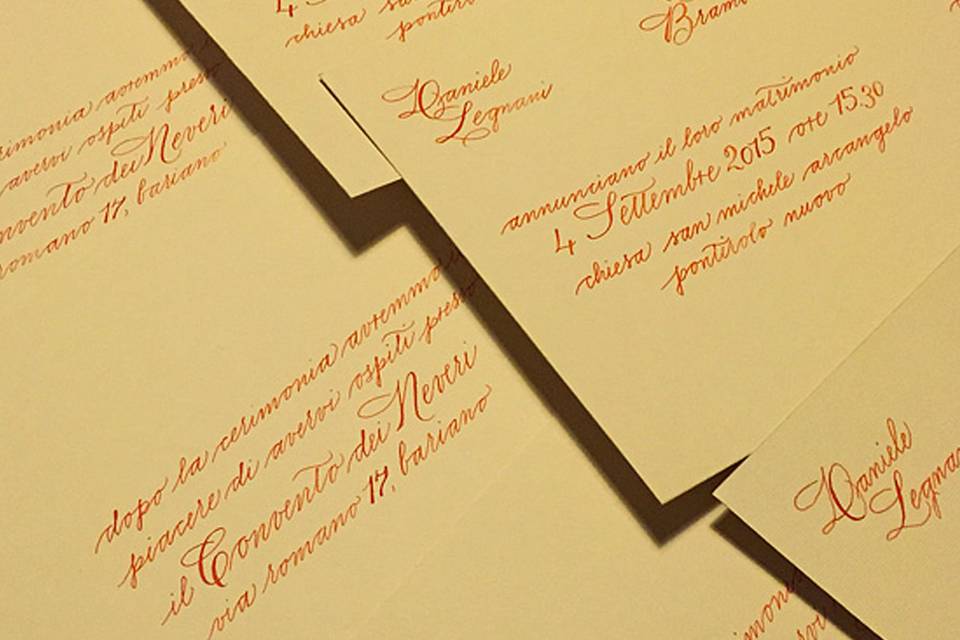 4
chiesa san
Daniele
Legnani
annunciano il loro matrimonio
4 Settembre 2015 ore 15.30
chiesa san michele arcangelo
pontirolo nuovo
avremmo
avervi ospiti presso
dei Neveri
romano 17, bariano
dopo la cerimonia avremmo
piacere di avervi ospiti presso
il Convento dei Neveri
via romano 17, bariano
Daniele